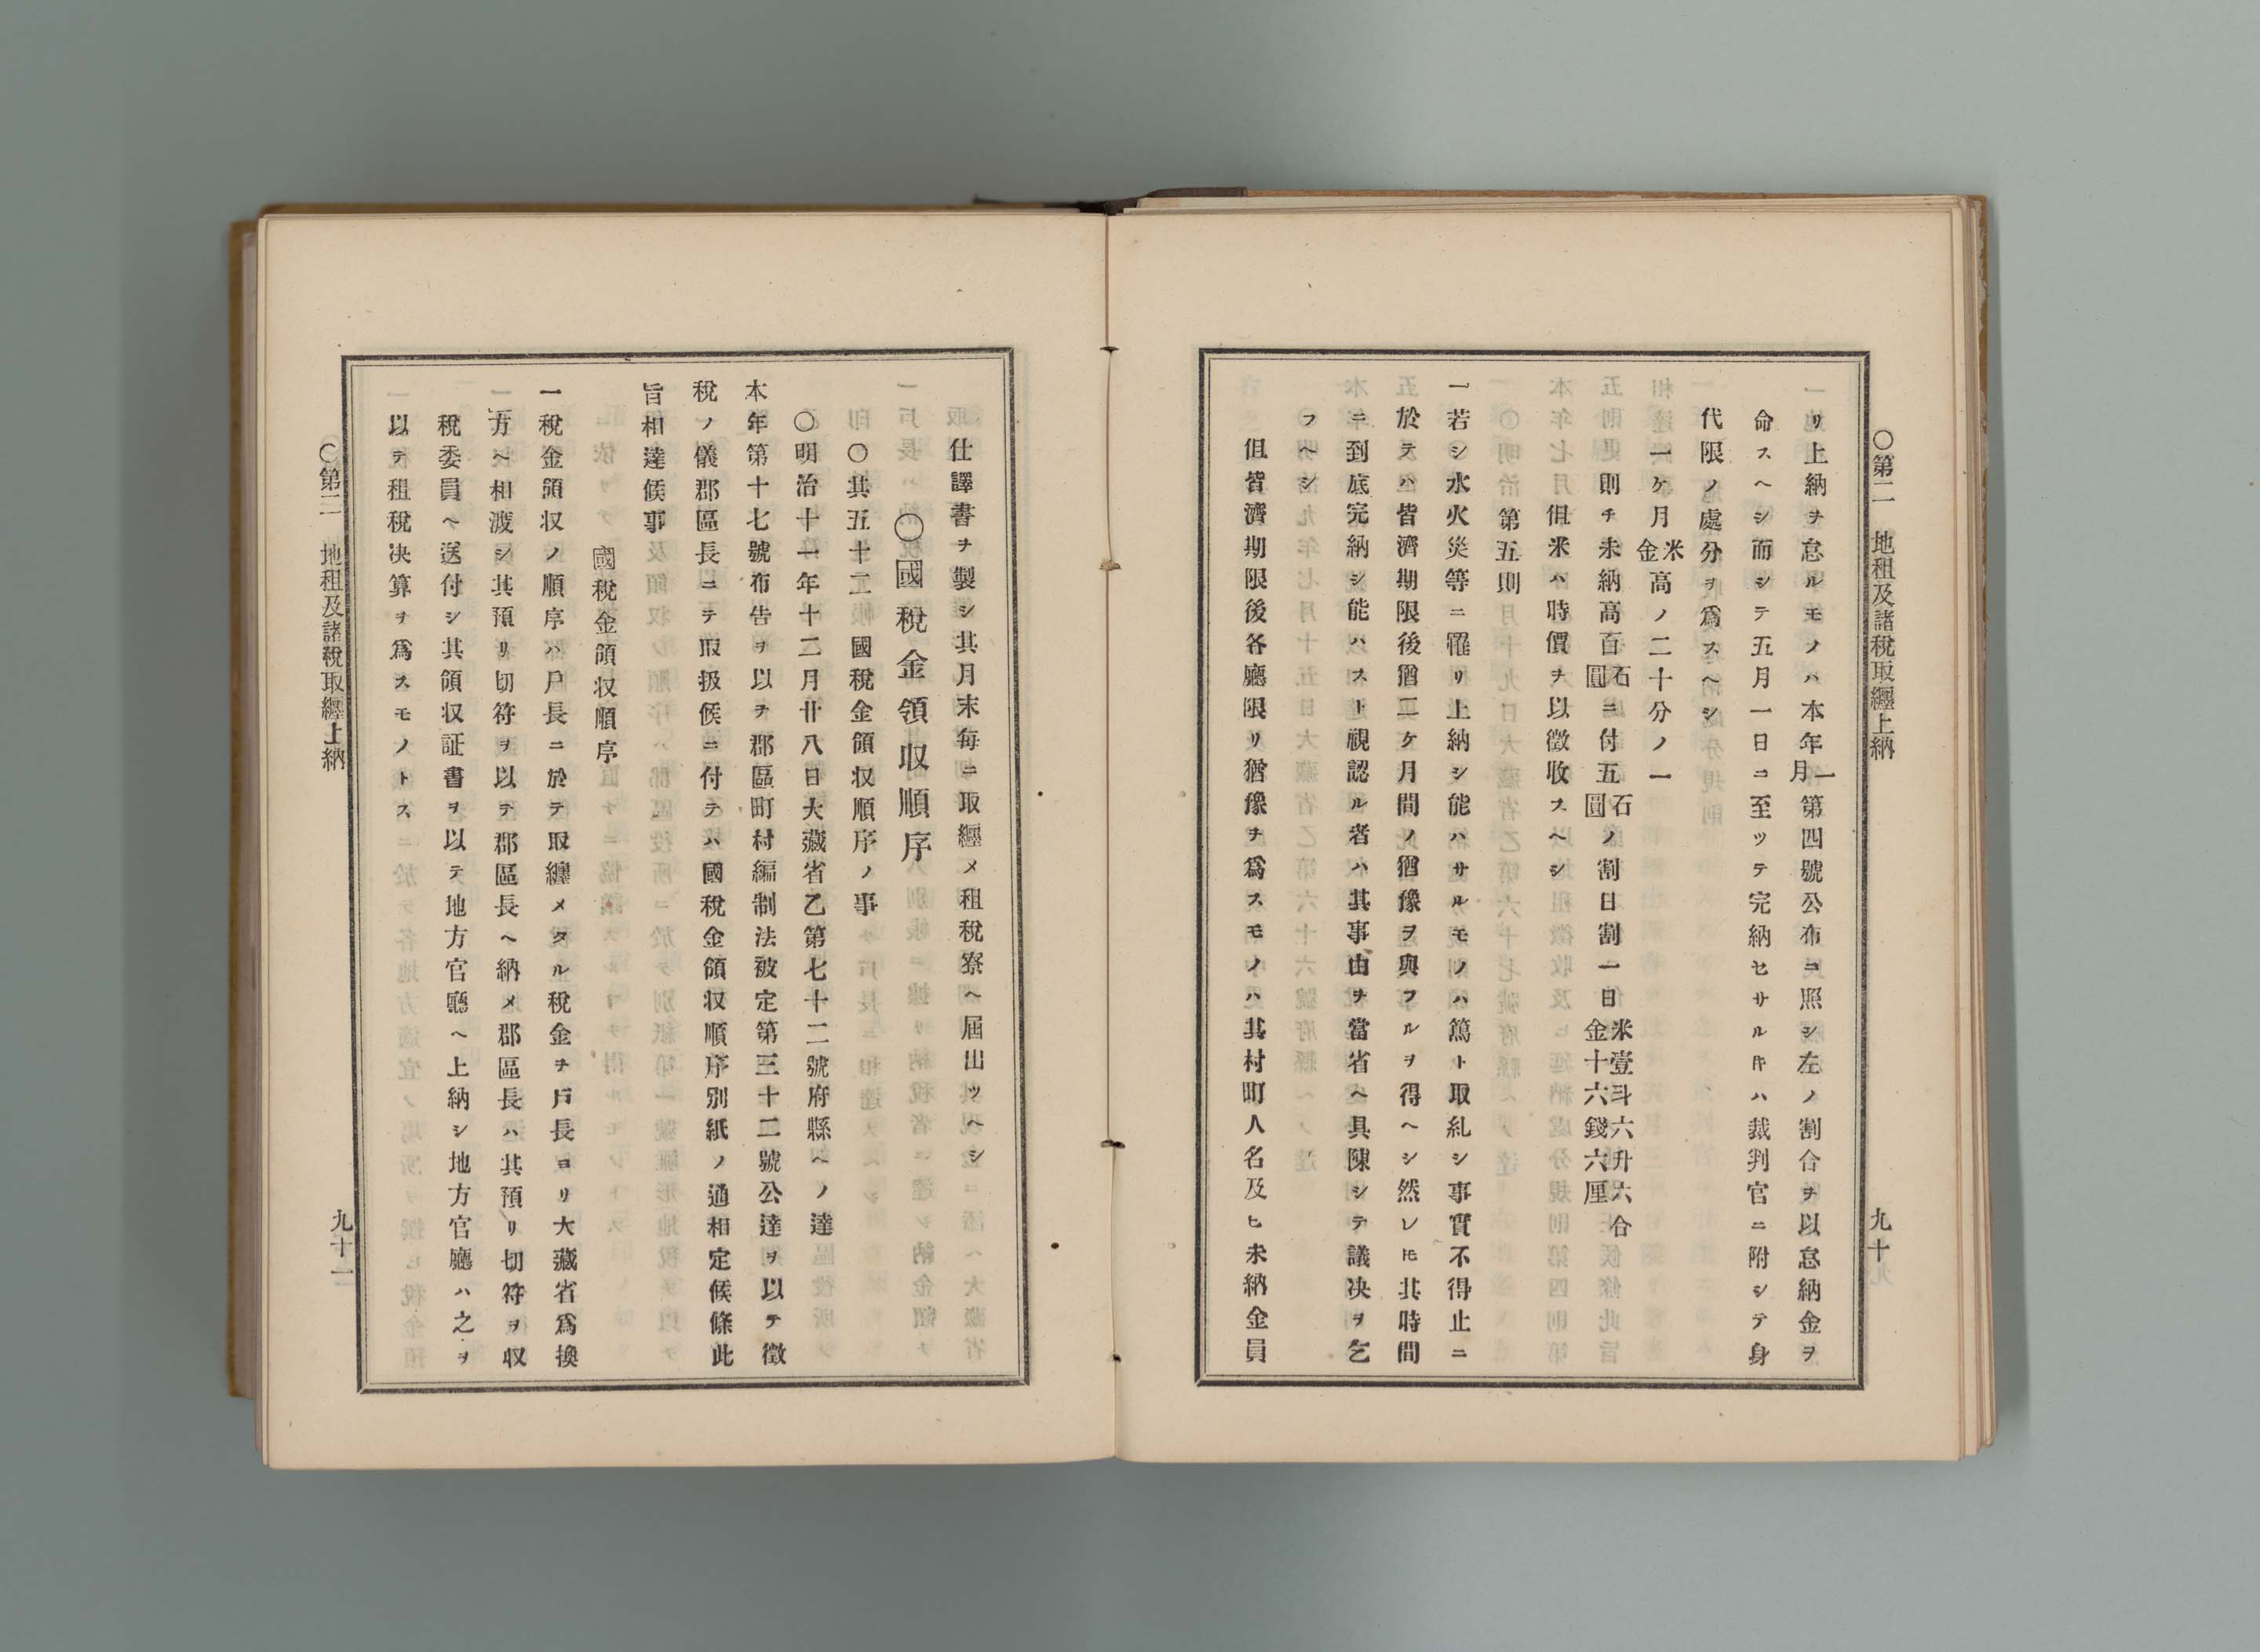 〇第二　地租及諸稅取纒上納　九十
リ上納ヲ怠ルモノハ本年一月第四號公布ニ照シ左ノ割合ヲ以怠納金ヲ
命スヘシ而シテ五月一日ニ至ッテ完納セサルキハ裁判官ニ附シテ身
代限ノ處分ヲ爲スヘシ
一ケ月米金高ノ二十分ノ一
則チ未納高百石圓ニ付五石圓ノ割日割一日米壹斗六升六合金十六錢六厘
但米ハ時價ヲ以徵收スヘシ
第五則
一若シ水火災等ニ罹リ上納シ能ハサルモノハ篤ト取糺シ事實不得止ニ
於テハ皆濟期限後猶二ケ月間ノ猶豫ヲ與フルヲ得ヘシ然レ𪜈其時間
ニ到底完納シ能ハスト視認ル者ハ其事由ヲ當省ヘ具陳シテ議決ヲ乞
フヘシ
但皆濟期限後各廳限リ猶豫ヲ爲スモノハ其村町人名及ヒ未納金員
仕譯書ヲ製シ其月末每ニ取纒メ租稅寮ヘ屆出ッヘシ
〇國稅金領収順序
〇其五十二　國稅金領収順序ノ事
〇明治十一年十二月廿八日大藏省乙第七十二號府縣ヘノ達
本年第十七號布告ヲ以テ郡區町村編制法被定第三十二號公達ヲ以テ徵
稅ノ儀郡區長ニテ取扱候ニ付テハ國稅金領収順序別紙ノ通相定候條此
旨相達候事
國稅金領収順序
一稅金領収ノ順序ハ戶長ニ於テ取纒メタル稅金ヲ戶長ヨリ大藏省爲換
方ヘ相渡シ其預リ切符ヲ以テ郡區長ヘ納メ郡區長ハ其預リ切符ヲ収
稅委員ヘ送付シ其領収証書ヲ以テ地方官廳ヘ上納シ地方官廳ハ之ヲ
以テ租稅決算ヲ爲スモノトス
〇第二　地租及諸稅取纒上納　九十一